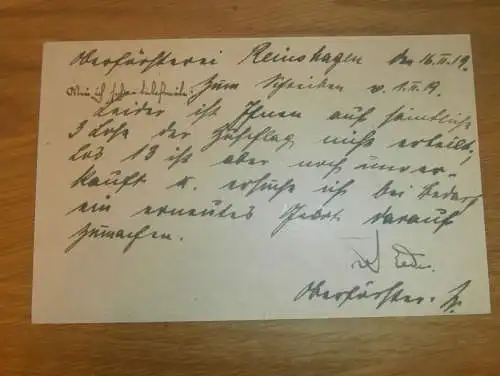 Oberförsterei Reinshagen den 16.II.19.
Zum Schreiben v. 1.II.19.
Leider ist Ihnen auf sämtliche
3 Lose der Zuschlag nicht erteilt,
Los 13 ist aber noch unver-
kauft u. ersuche ich bei Bedarf
ein erneutes Gebot darauf
zumachen.
Oberförster.